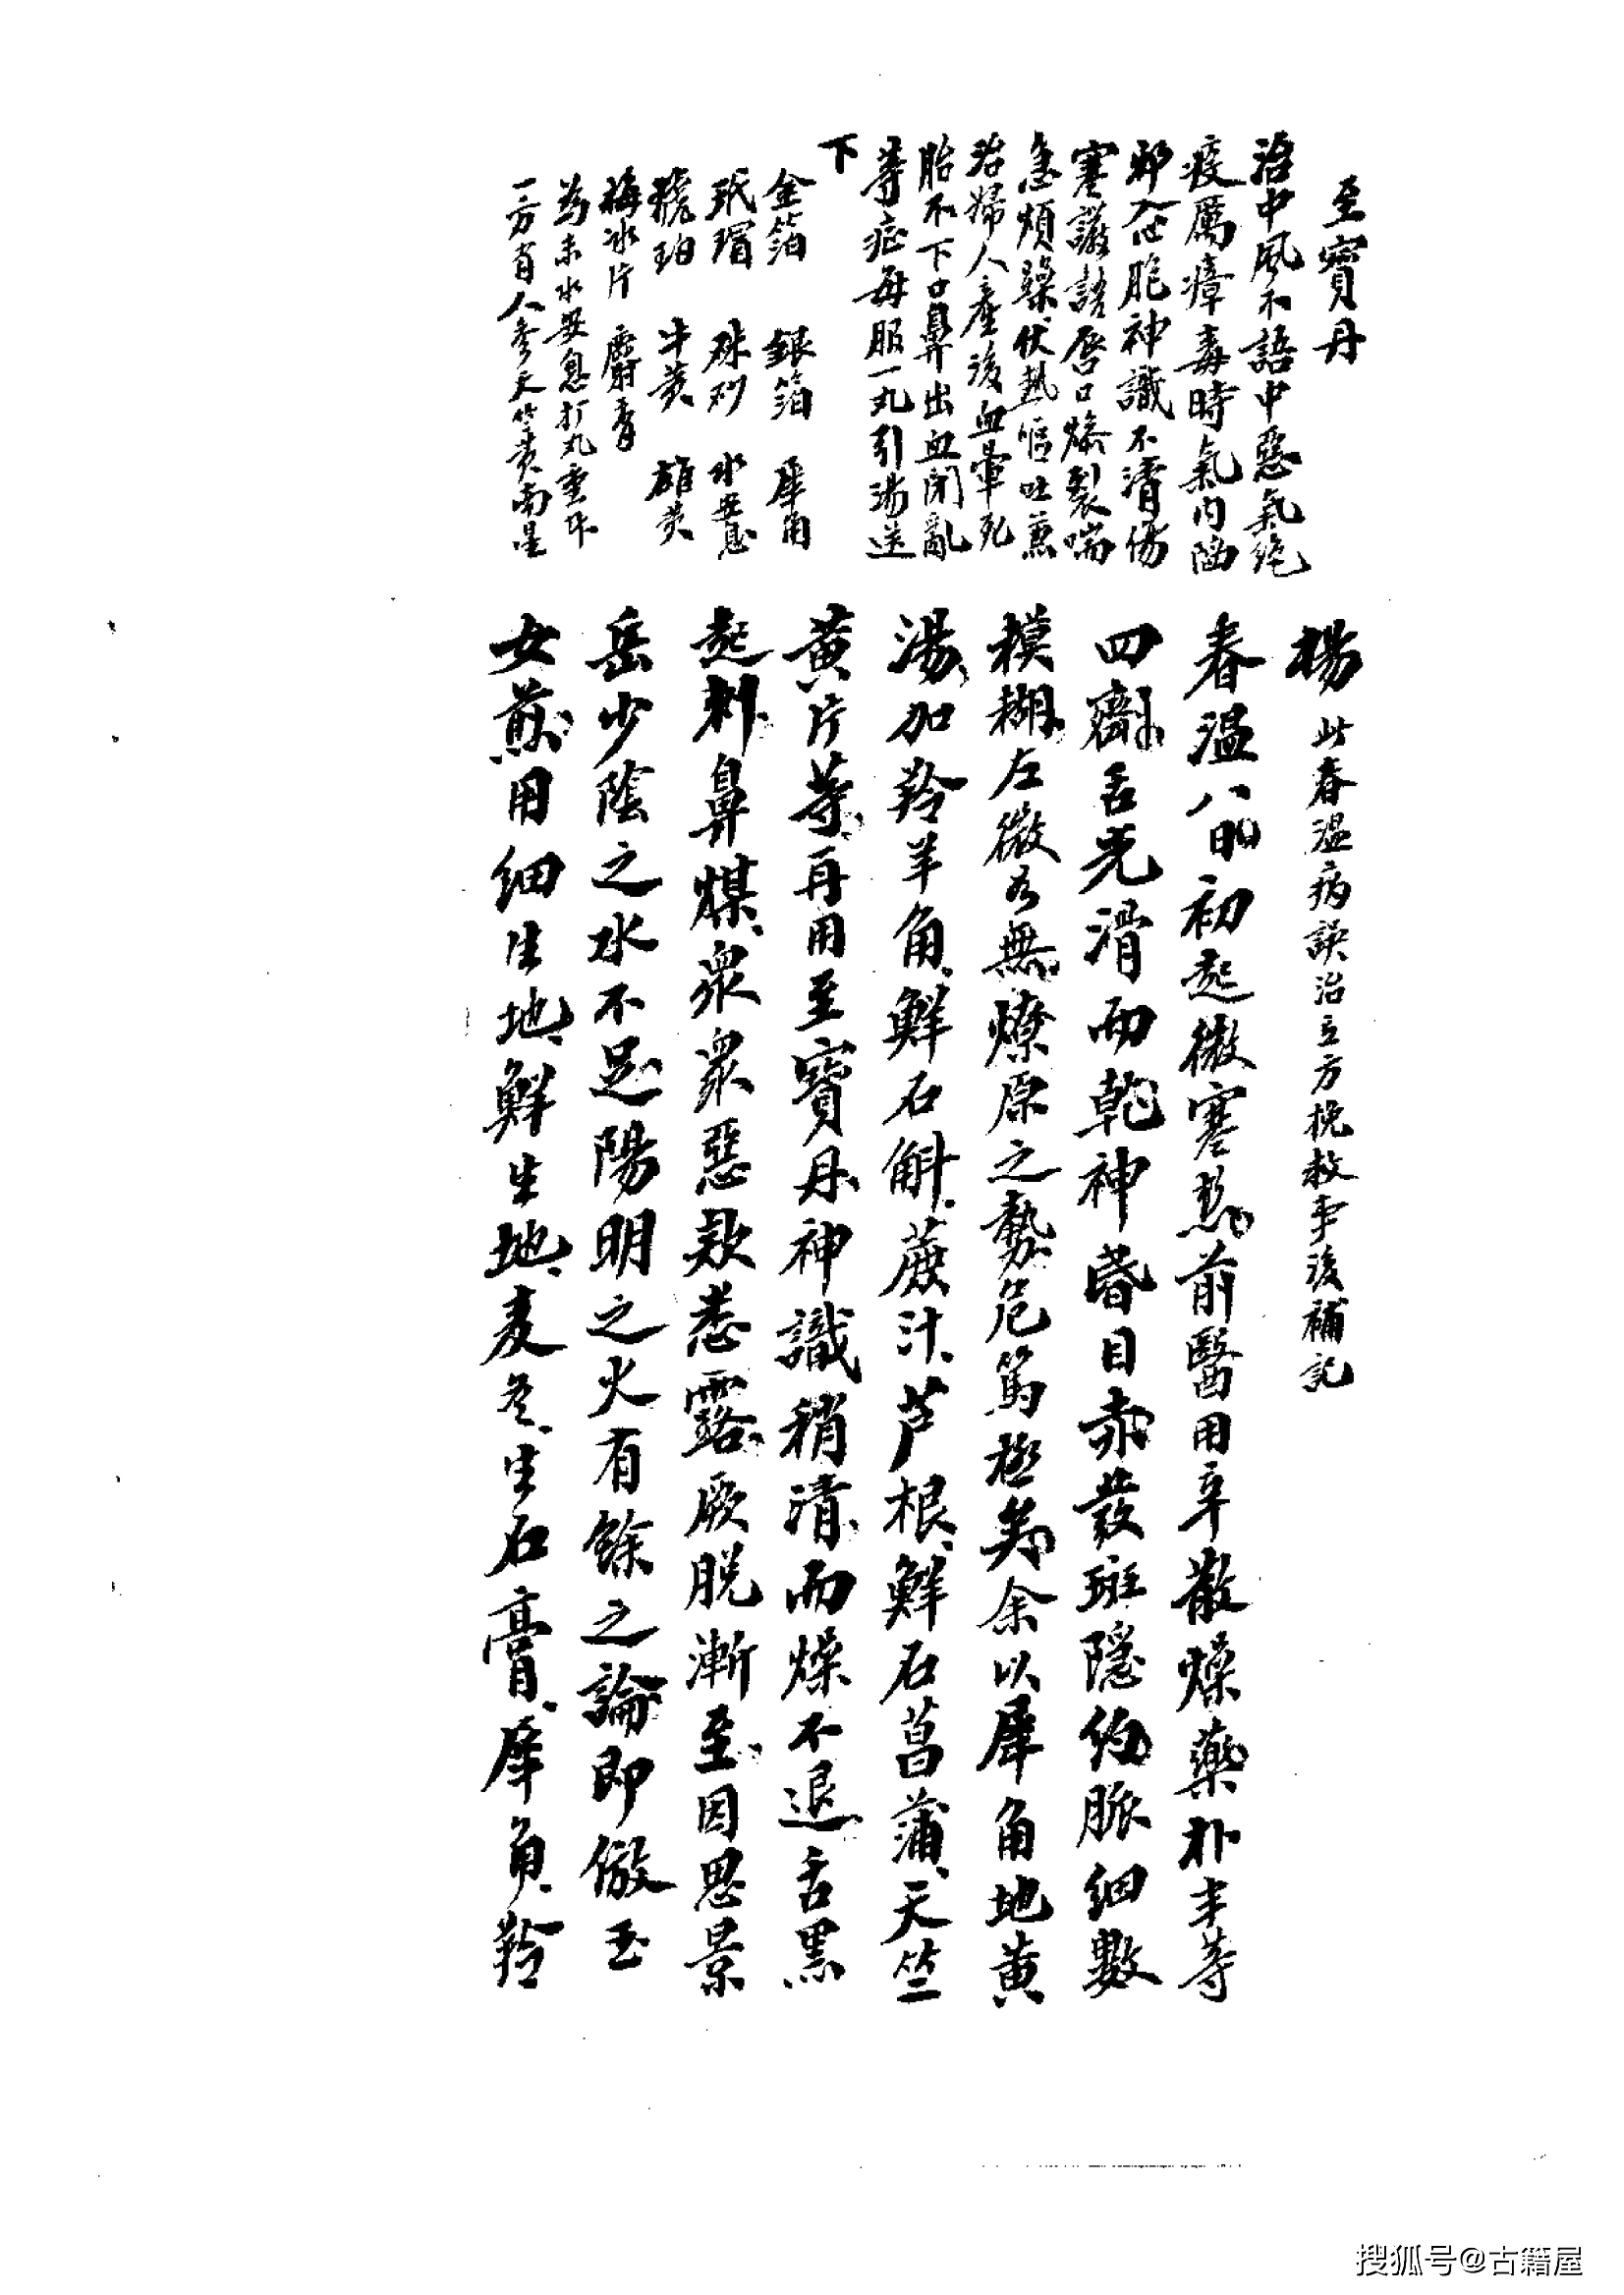 至寶丹
治中風不語中惡氣絕
疫厲瘴毒時氣內陷
邪入心胞神識不清傷
寒譫語唇口燥裂喘
急煩躁伏熱嘔吐兼
治婦人產後血暈死
胎不下口鼻出血閉亂
等症每服一丸引湯送
下
金箔 銀箔 犀角
玳瑁 硃砂 水安息
琥珀 牛黃 雄黃
梅冰片 麝香
為末水安息打丸重
一方有人參天竺黃南星
楊 此春溫病誤治立方挽救事後補記
春溫八日初起微寒熱前醫用辛散燥藥朴半等
四劑舌光滑而乾神昏目赤發斑隱約脈細數
模糊左微右無燎原之勢危篤極矣余以犀角地黃
湯加羚羊角鮮石斛蔗汁芦根鮮石菖蒲天竺
黃片等再用至寶丹神識稍清而燥不退舌黑
起刺鼻煤眾眾惡款悉露厥脫漸至因思景
岳少陰之水不足陽明之火有餘之論即倣玉
女煎用細生地鮮生地麦冬生石膏犀角羚
搜狐号@古籍屋